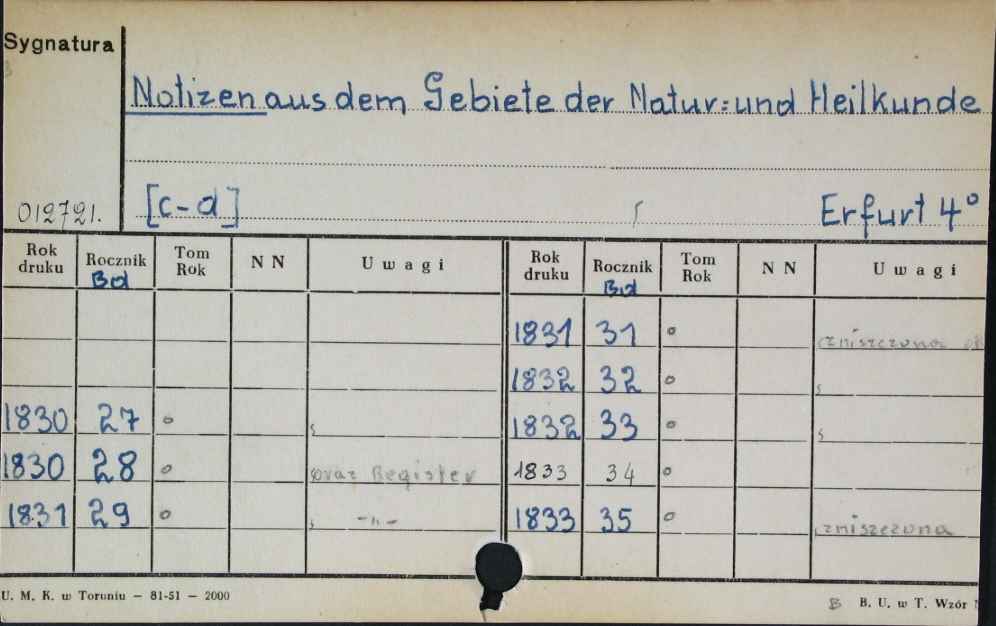 Sygnatura
Notizen aus dem Gebiete der Natur= und Heilkunde
012721. [c-d] Erfurt 4°
Rok druku Rocznik Bd Tom Rok N N Uwagi Rok druku Rocznik Bd Tom Rok N N Uwagi
1831 31 o zniszczona
1832 32 o
1830 27 o 1832 33 o
1830 28 o oraz Register 1833 34 o
1831 29 o -"- 1833 35 o zniszczona
U. M. K. w Toruniu — 81-51 — 2000 B B. U. w T. Wzór